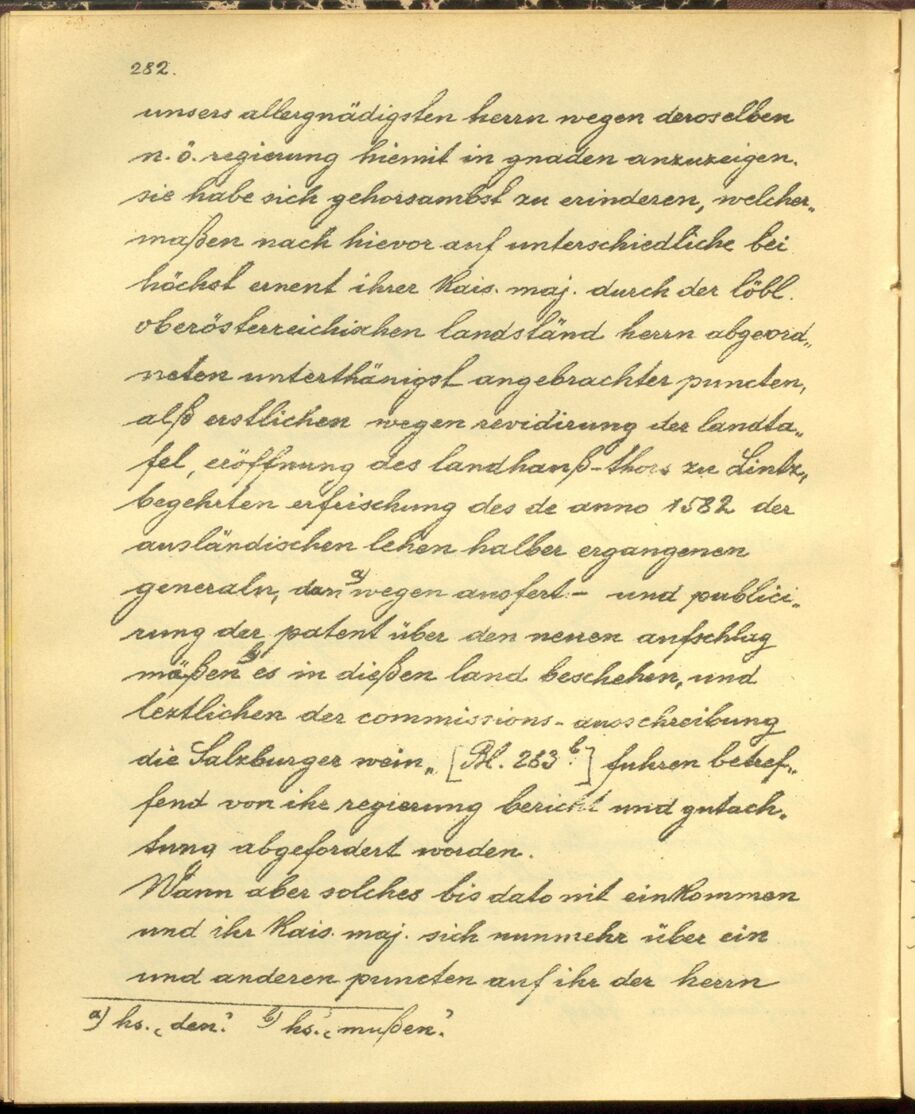 282.
unsers allergnädigsten herrn wegen deroselben
n. ö. regierung hiemit in gnaden anzuzeigen.
sie habe sich gehorsambst zu erinderen, welcher„
maßen nach hievor auf unterschiedliche bei
höchst ernent ihrer Kais. maj. durch der löbl.
oberösterreichischen landständ herrn abgeord„
neten unterthänigst angebrachter puncten,
alß erstlichen wegen revidirung der landta„
fel, eröffnung des landhauß-thors zu Lintz,
begehrten erfrischung des de anno 1582 der
ausländischen lehen halber ergangenen
generaln, dan a) wegen ausfert- und publici„
rung der patent über den neuen aufschlag
mäßen b) es in dießen land beschehen, und
leztlichen der commissions-ausschreibung
die Salzburger wein„ [Bl. 283 b.] fuhren betref„
fend von ihr regierung bericht und gutach„
tung abgefordert worden.
Wann aber solches bis dato nit einkommen
und ihr Kais. maj. sich nunmehr über ein
und anderen puncten auf ihr der herrn
a) hs. „den“. b) hs. „mußen“.